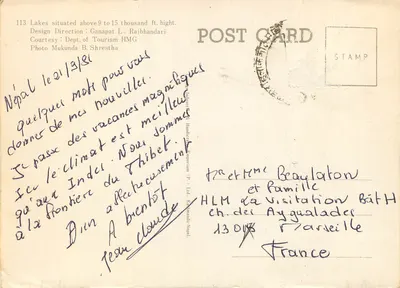 113 Lakes situated above 9 to 15 thousand ft. hight.
Design Direction : Ganapat L. Rajbhandari
Courtesy : Dept. of Tourism HMG
Photo Mukunda B. Shrestha
POST CARD
STAMP
Népal le 21/3/81
quelques mots pour vous
donner de mes nouvelles.
Je passe des vacances magnifiques
Ici le climat est meilleur
qu'aux Indes. Nous sommes
à la frontière du Thibet.
Bien affectueusement
A bientôt
Jean claude
Mr et Mme Beaylaton
et Famille
HLM La Visitation Bât H
ch. des Aygualades
13 Marseille
France